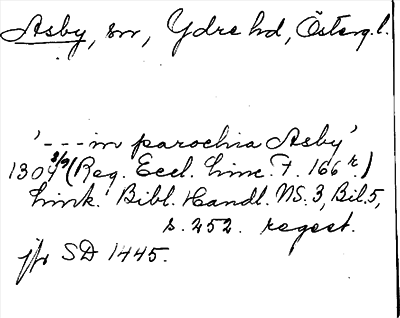 Asby, sn, Ydre hd, Österg. l.
'---in parochia Asby'
1307 3/9 (Reg. Eccl. Linc. F. 166 r.)
Link. Bibl. Handl. NS. 3, Bil. 5,
s. 252. regest.
jfr SD 1445.